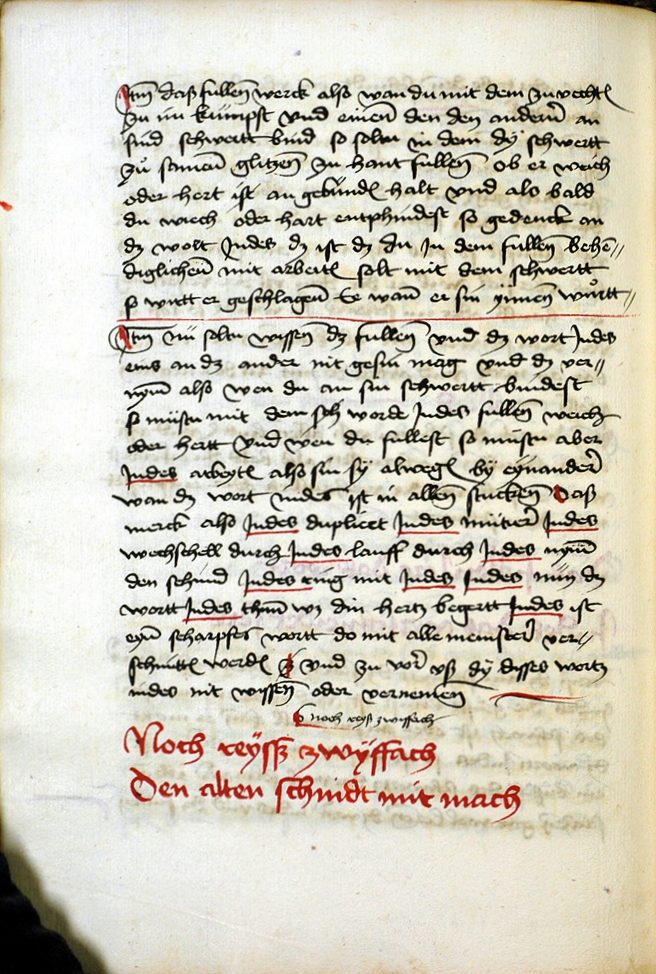 Itm̄ daß fullen̄ werck also wan du mit dem zu vechtē
zu im kumpst vnd einer den den andern̄ an
sind schwertt bind so soltu in dem dy schwertt
zů samen̄ glitzen̄ zu hant fullen̄ ob er weich
oder hert ist an gebundē halt vnd als bald
du wiech oder hart entphindest so gedenck an
dz wolt Indes dz ist dz du In dem fullen̄ behe〃
diglichen̄ mit arbeitē solt mit dem schwertt
so wirtt er geschlagen̄ Ee wan̄ er sin ynnen württ〃
Itm̄ nu soltu wissen dz fullen̄ vnd dz wort Indes
eins an dz ander nit gesin mag vnd dz ver〃
nym̄ also wen du an sin schwertt bindest
so mustu mit dem sch worde Indes fullen̄ weich
oder hertt vnd wen du fullest so mustu aber
Indes arbeytē also sin sy alwegē by eynander̄
wan dz wort indes ist in allen̄ stucken̄ Daß
merck also Indes duplicrt Indes mutier̄ Indes
wechschell durch Indes lauff durch Indes nym̄
den schnid Indes ring mit Indes Indes nun dz
wortt Indes thun̄ wz din hertz begertt Indes ist
eyn̄ scharpfes wortt do mit alle meinster̄ ver〃
schnittē werdē vnd zu vor̄ vß dy disses wortz
indes nit wissen̄ oder vernemen̄
noch reyß zwiffach
Noch reyssz zwyffach
Den alten schnidt mit mach